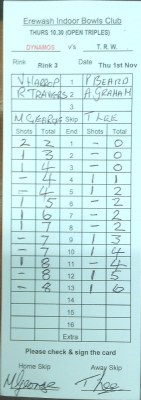 Erewash Indoor Bowls Club
THURS 10.30 (OPEN TRIPLES)
DYNAMICS v's T. R. W.
Rink Rink 3 Date Thu 1st Nov
V HARROP 1 P BEARD
R TRAVERS 2 A. GRAHAM
M GEORGE Skip T LEE
Shots Total Shots Total
2 2 1 - 0
1 3 2 - 0
1 4 3 - 0
- 4 4 1 1
- 4 5 1 2
1 5 6 - 2
1 6 7 - 2
1 7 8 - 2
- 7 9 1 3
- 7 10 1 4
1 8 11 - 4
- 8 12 1 5
- 8 13 1 6
14
15
16
Extra
Please check & sign the card
Home Skip Away Skip
M George T Lee